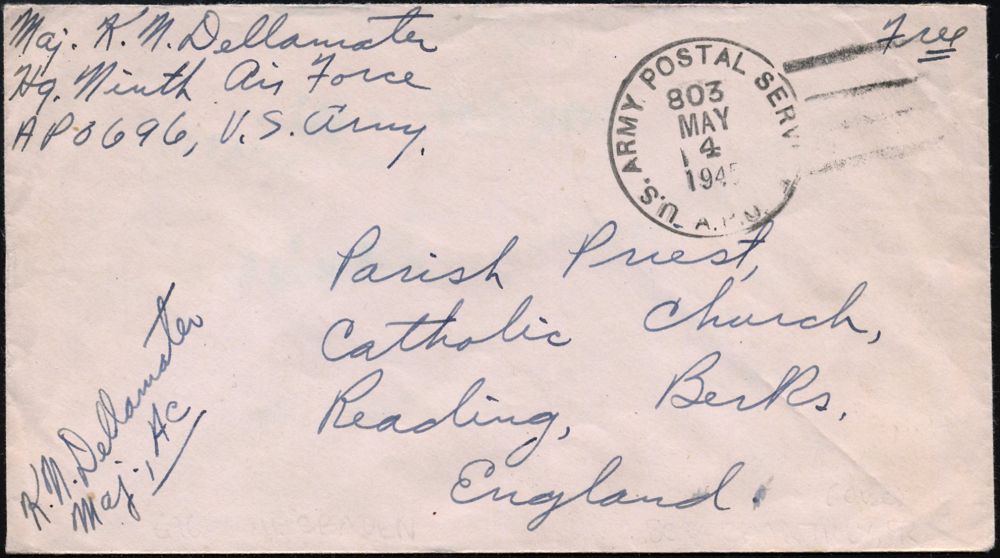 Maj. K. N. Dellamater
Hq. Ninth Air Force
APO 696, U.S. Army.
Free
U.S. ARMY POSTAL SERV
803
MAY
14
194
A.P.O.
Parish Priest,
Catholic Church,
Reading, Berks.
England.
K. N. Dellamater
Maj., AC